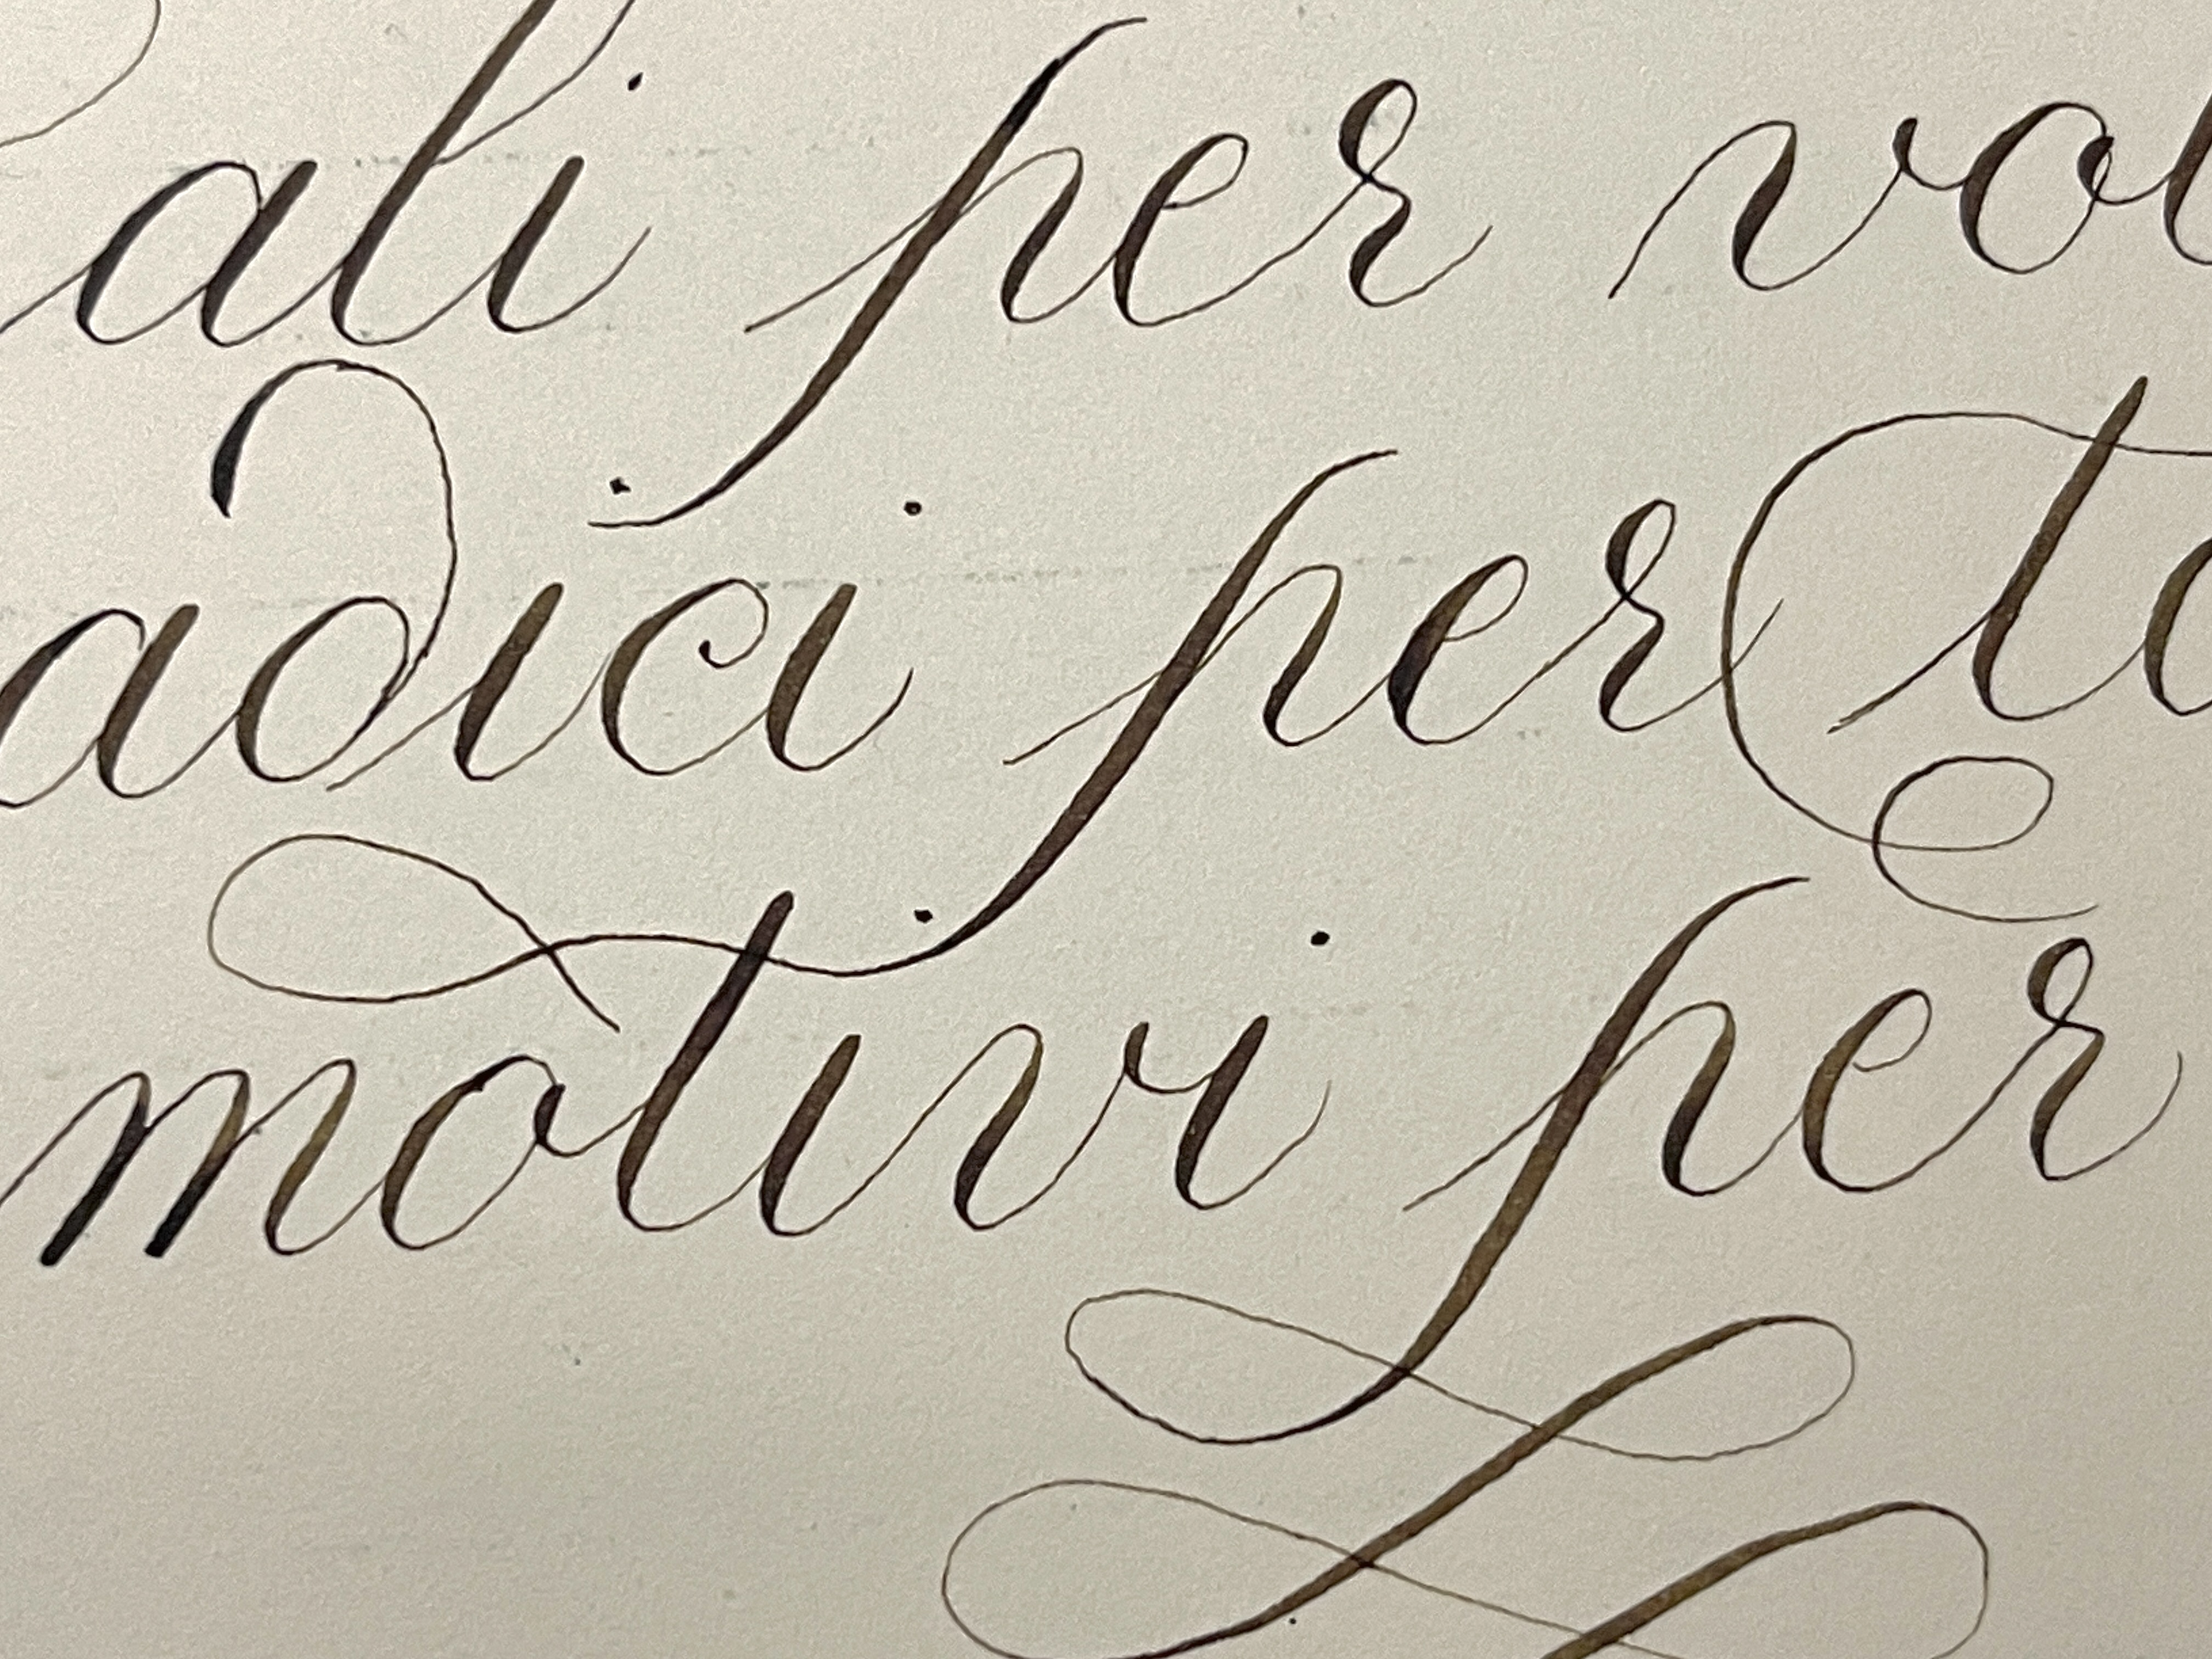 ali per vol
adici per to
motivi per